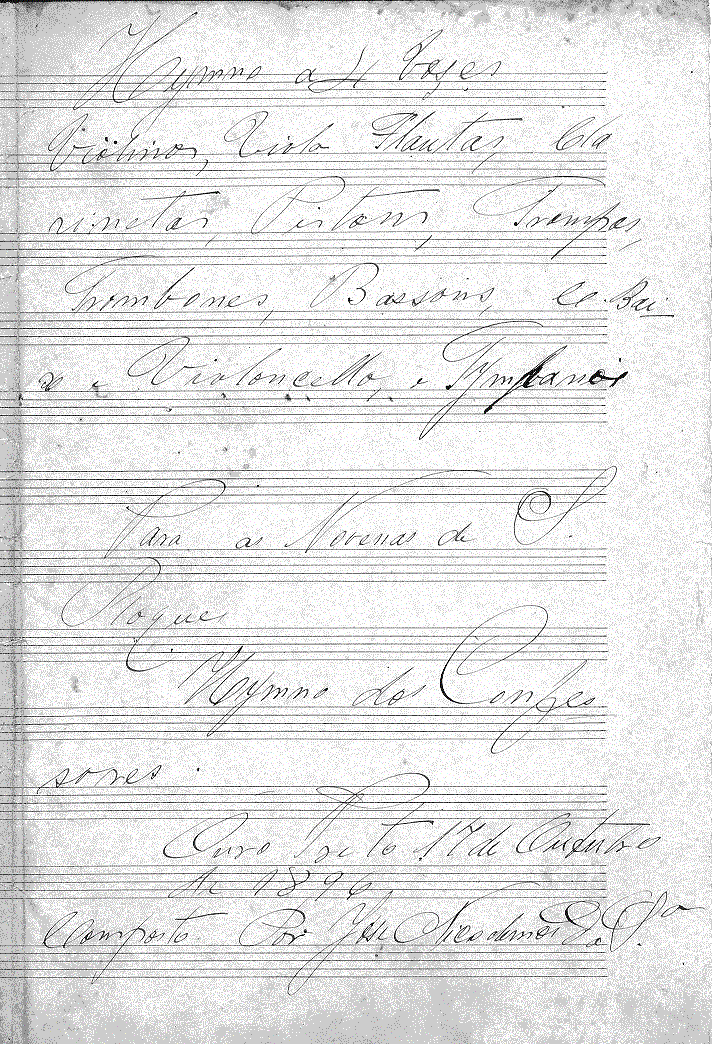 Hymno a 4 Vozes
Violinos, Viola Flautas, Cla
rinetas, Pistons, Trompas,
Trombones, Bassons, e Bai
xo e Violoncello, e Tympanos
Para as Novenas de S.
Roque
Hymno dos Confes
sores.
Ouro Preto 17 de Outubro
de 1896
Composto Por José Nicodemos da Sª